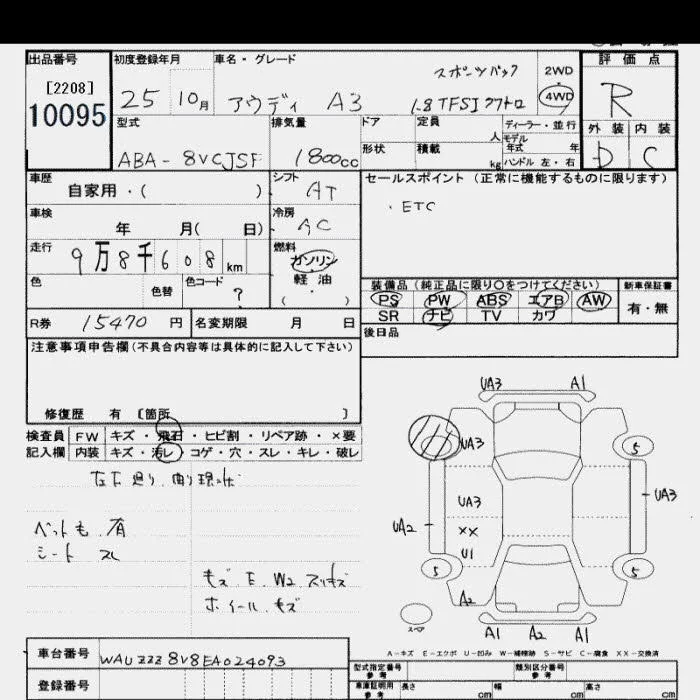 出品番号
[2208]
10095
初度登録年月
25 10月
車名・グレード
スポーツバック
アウディ A3 1.8 TFSI クワトロ
2WD
4WD
評価点
R
外装 内装
D C
型式
ABA-8VCJSF
排気量
1800cc
ドア
形状
定員 人
積載 kg
ディーラー・並行
モデル
年式 年
ハンドル 左・右
車歴
自家用・( )
シフト
AT
セールスポイント (正常に機能するものに限ります)
・ETC
車検
年 月( 日)
冷房
AC
走行
9万8千608km
燃料
ガソリン
軽油
( )
色
色替
色コード
?
装備品 (純正品に限り○をつけてください)
PS PW ABS エアB AW
SR ナビ TV カワ
新車保証書
有・無
R券 15470 円
名変期限 月 日
後日品
注意事項申告欄(不具合内容等は具体的に記入して下さい)
修復歴 有 〔箇所 〕
検査員
記入欄
FW キズ・飛石・ヒビ割・リペア跡・×要
内装 キズ・汚レ・コゲ・穴・スレ・キレ・破レ
ペット毛 有
シート スレ
キズ E W2 スリキズ
ホイール キズ
UA3 A1
UA3
5
UA3
UA3
UA2
XX
U1
5
5
A2
スペア
A1 A2 A1
A-キズ E-エクボ U-凹み W-補修跡 S-サビ C-腐食 XX-交換済
車台番号
WAUZZZ8V8EA024093
登録番号
型式指定番号
参考
類別区分番号
参考
車庫証明用
参考
長さ cm
幅 cm
高さ cm